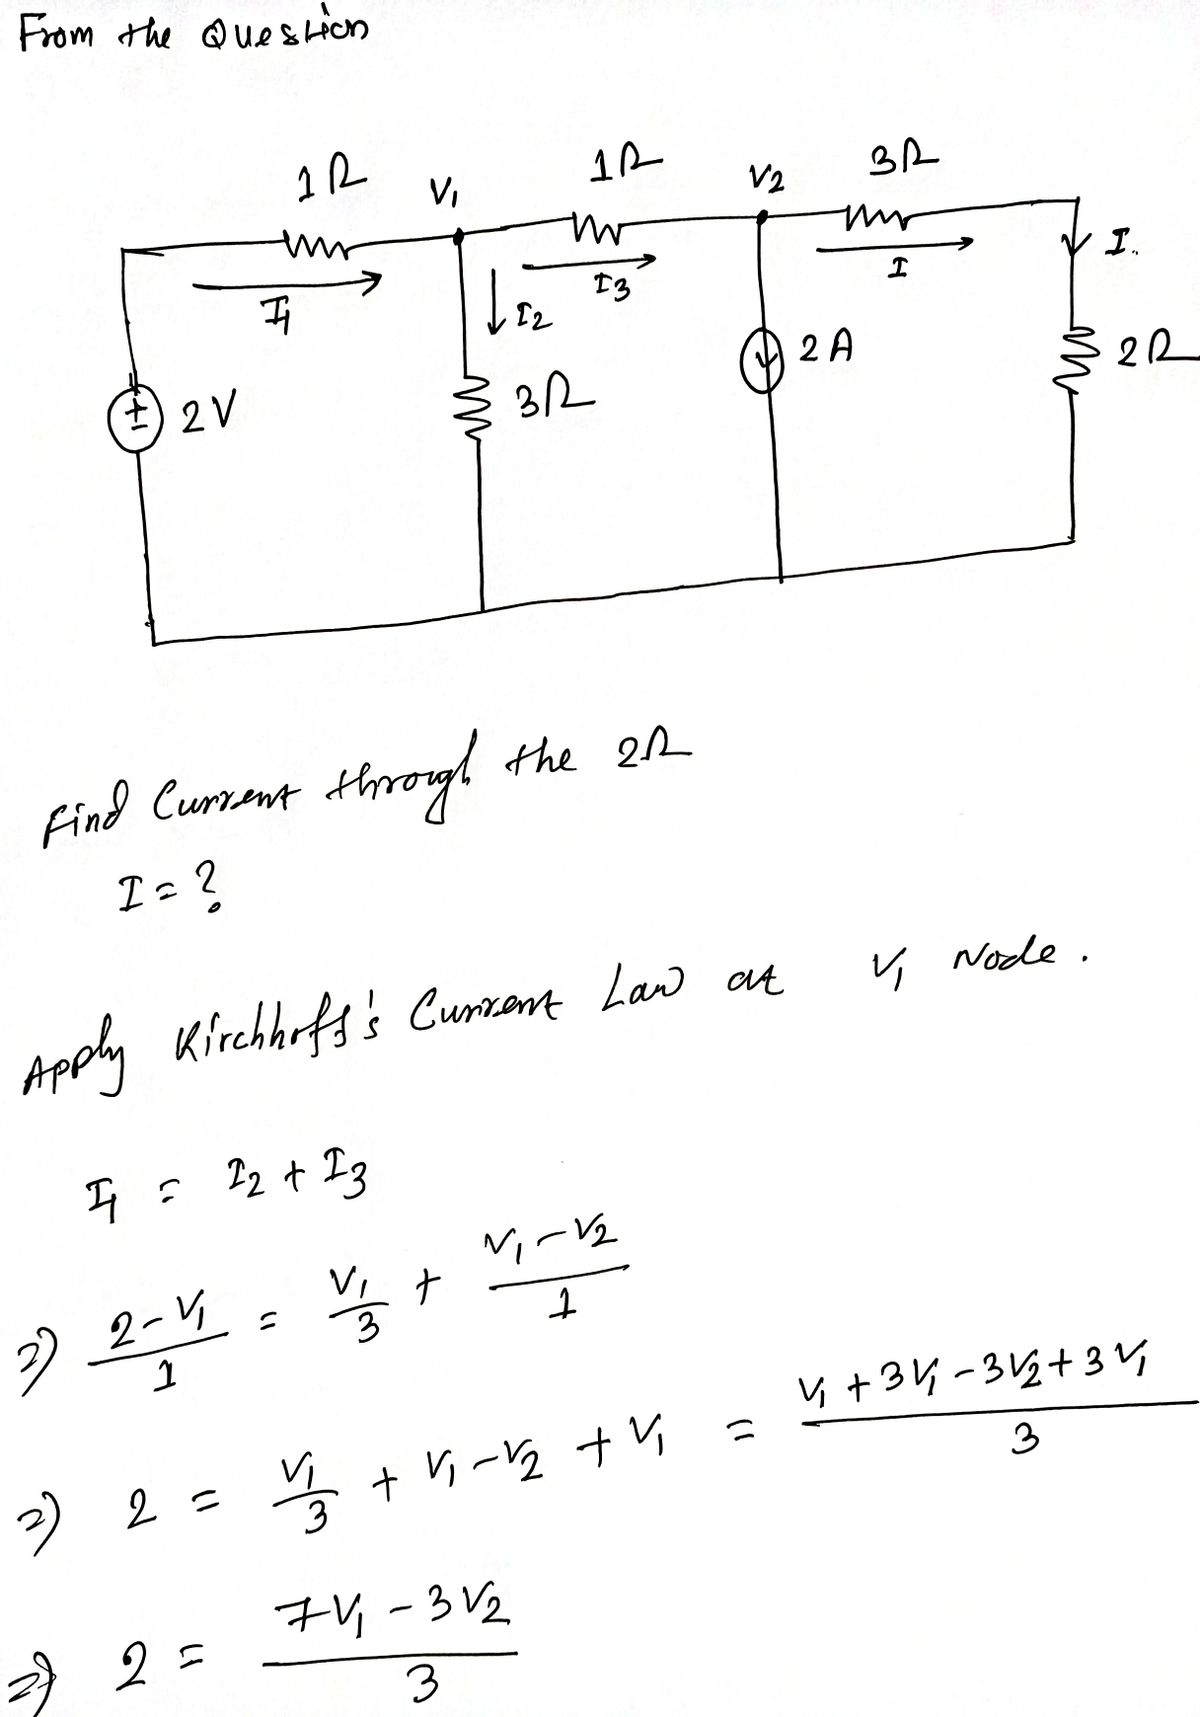 From the Question
1Ω V₁ 1Ω V2 3Ω
I₁ I2 I3 I I
2V 3Ω 2A 2Ω
Find Current through the 2Ω
I = ?
Apply Kirchhoff's Current Law at V₁ Node.
I₁ = I2 + I3
⇒ (2-V₁)/1 = V₁/3 + (V₁-V2)/1
⇒ 2 = V₁/3 + V₁-V2 + V₁ = (V₁+3V₁-3V2+3V₁)/3
⇒ 2 = (7V₁-3V2)/3